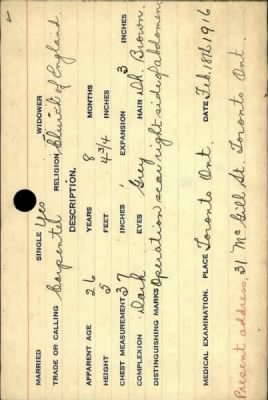 MARRIED SINGLE Yes WIDOWER
TRADE OR CALLING Carpenter RELIGION Church of England
DESCRIPTION.
APPARENT AGE 26 YEARS 8 MONTHS
HEIGHT 5 FEET 4 3/4 INCHES
CHEST MEASUREMENT 37 INCHES EXPANSION 3 INCHES
COMPLEXION Dark EYES Grey HAIR Dk. Brown.
DISTINGUISHING MARKS Operation scar right side of abdomen.
MEDICAL EXAMINATION. PLACE Toronto Ont. DATE Feb. 18th 1916
Present address, 31 McGill St. Toronto Ont.